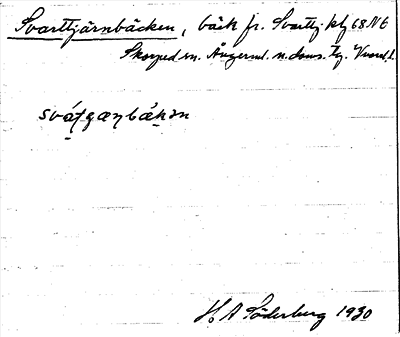 Svarttjärnbäcken, bäck fr. Svarttj. kbl 68 NE
Skorped sn. Ångerml. n. doms. tg.
sváʈʂæɳbǽkən
H. A Söderberg 1930